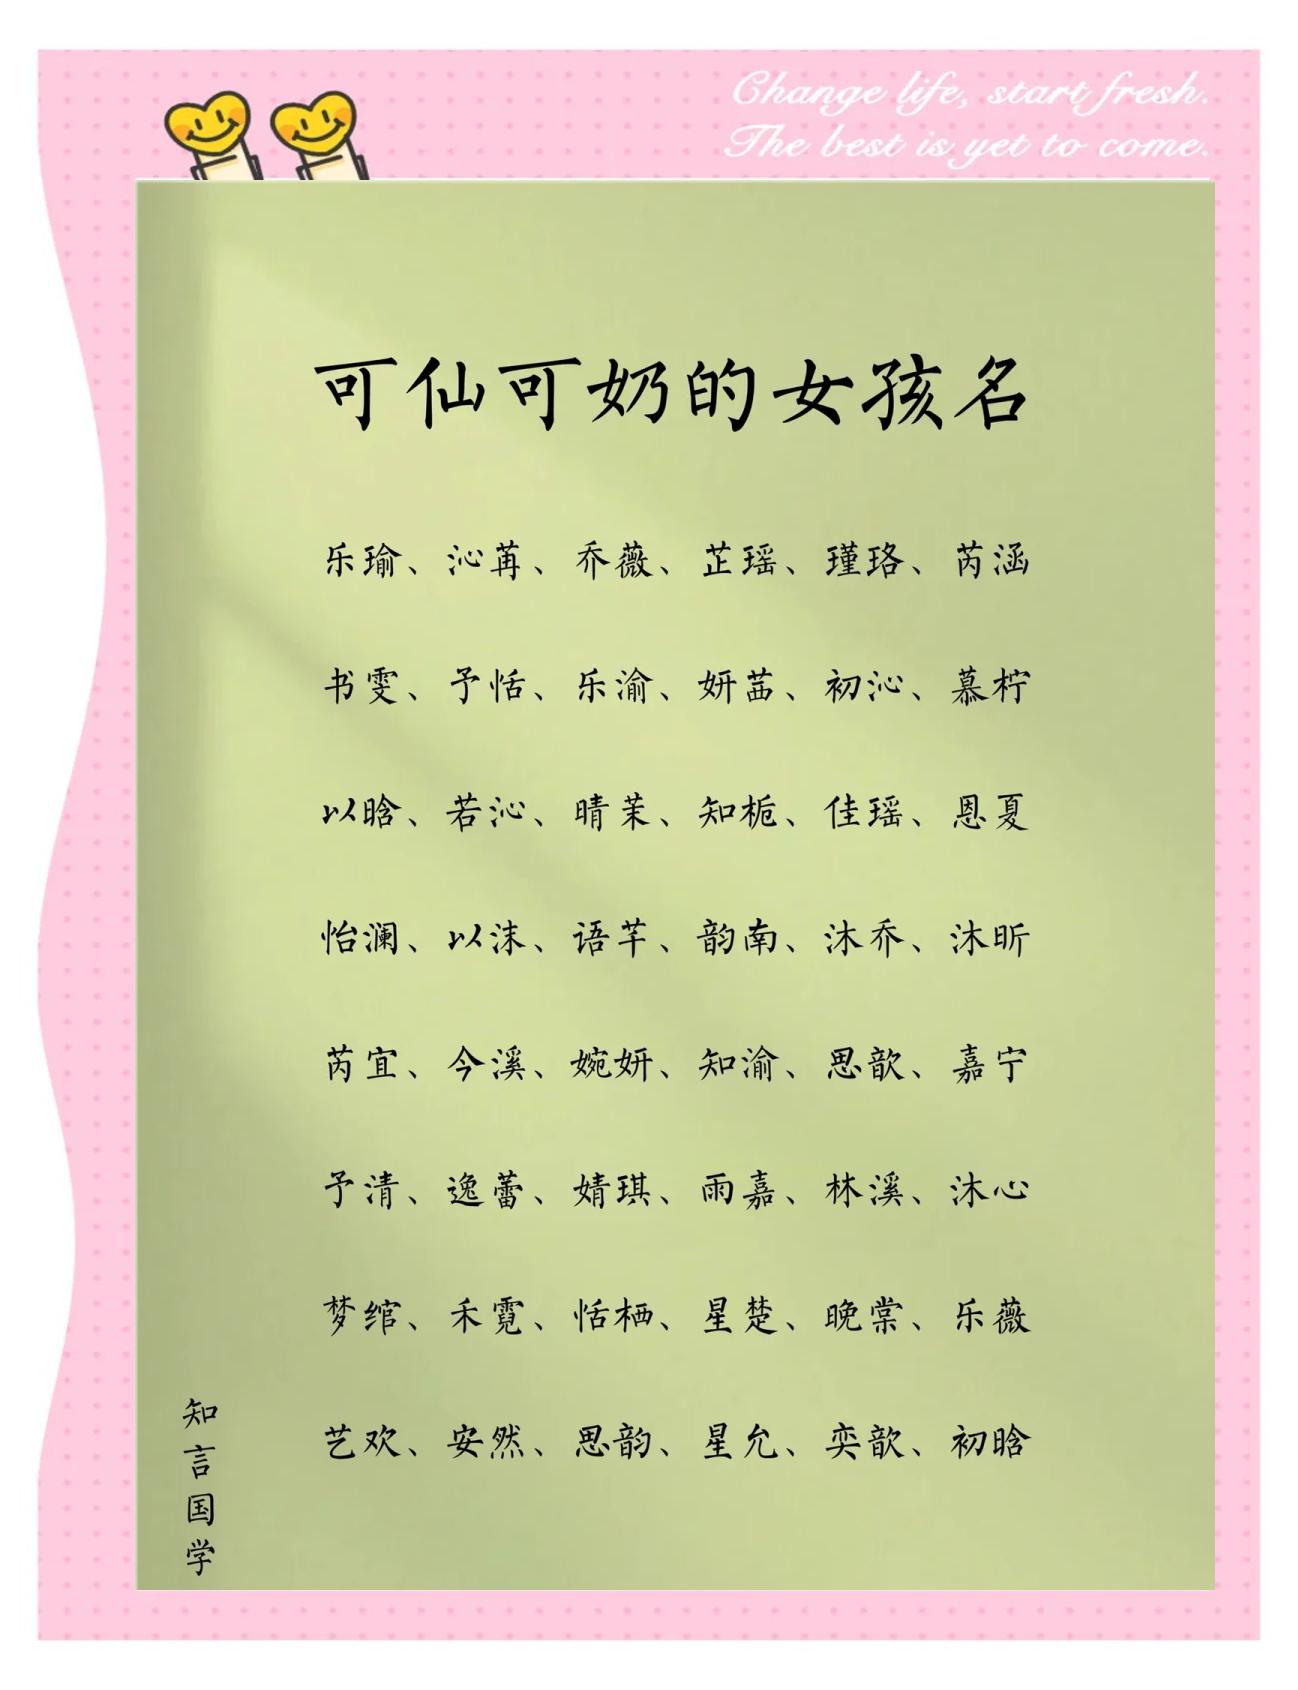 Change life, start fresh.
The best is yet to come.
可仙可奶的女孩名
乐瑜、沁苒、乔薇、芷瑶、瑾珞、芮涵
书雯、予恬、乐渝、妍菡、初沁、慕柠
以晗、若沁、晴茉、知栀、佳瑶、恩夏
怡澜、以沫、语芊、韵南、沐乔、沐昕
芮宜、今溪、婉妍、知渝、思歆、嘉宁
予清、逸蕾、婧琪、雨嘉、林溪、沐心
梦绾、禾霓、恬栖、星楚、晚棠、乐薇
艺欢、安然、思韵、星允、奕歆、初晗
知言国学